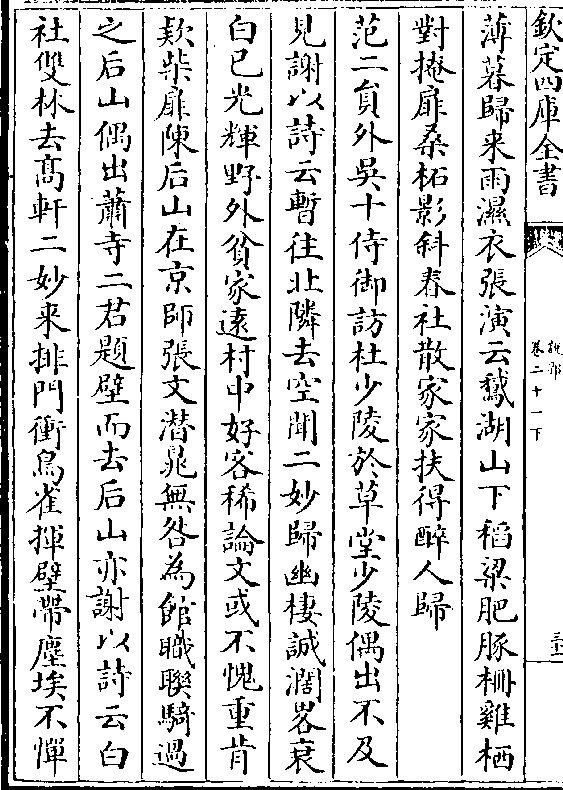 欽定四庫全書
說郛
卷二十一下
三
薄暮歸来雨濕衣張演云鵝湖山下稻粱肥豚柵雞栖
對掩扉桑柘影斜春社散家家扶得醉人歸
范二員外吳十侍御訪杜少陵於草堂少陵偶出不及
見謝以詩云暫往北隣去空聞二妙歸幽棲誠濶畧衰
白已光輝野外貧家逺村中好客稀論文或不愧重肯
欵柴扉陳后山在京師張文潜晁無咎為館職聨騎過
之后山偶出蕭寺二君題壁而去后山亦謝以詩云白
社雙林去髙軒二妙来排門衝鳥雀揮壁帶塵埃不憚